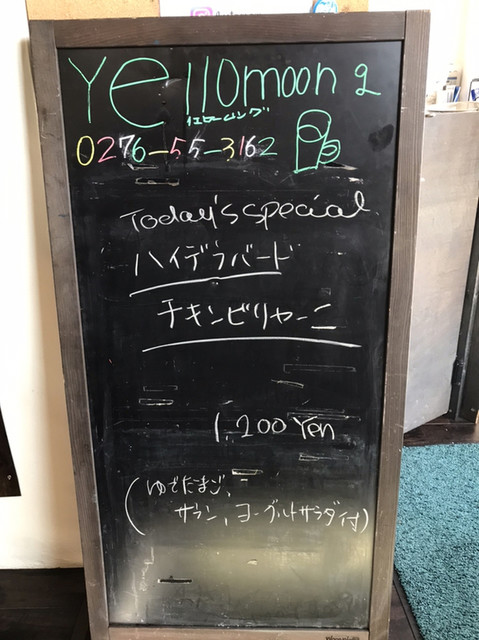 Yellomoon g
イエロームング
0276-55-3162
Today's special
ハイデラバード
チキンビリヤーニ
1,200 Yen
(ゆでたまご、
サラン、ヨーグルトサラダ付)